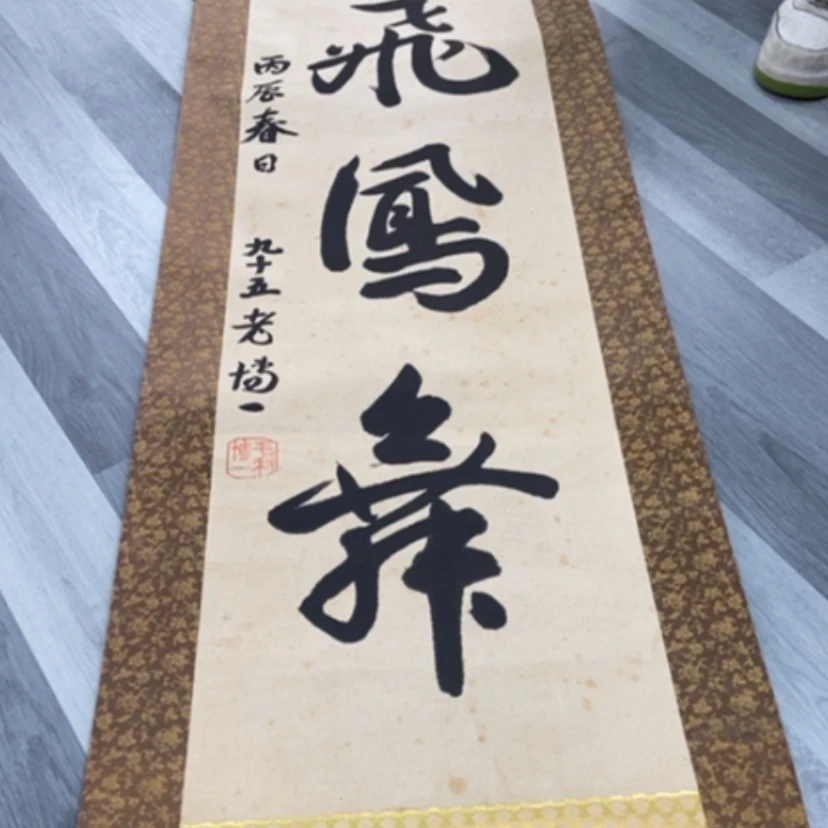 飛鳳舞
丙辰春日 九十五老博一